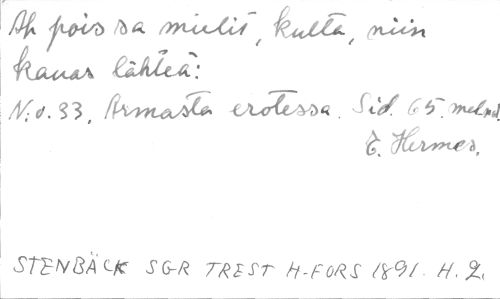 Ah pois sa mielit, kulta, niin
kauas lähteä:
N:o. 33, Armasta erotessa. Sid. 65. mel.
E. Hermes.
STENBÄCK SGR TREST H-FORS 1891. H. 2.